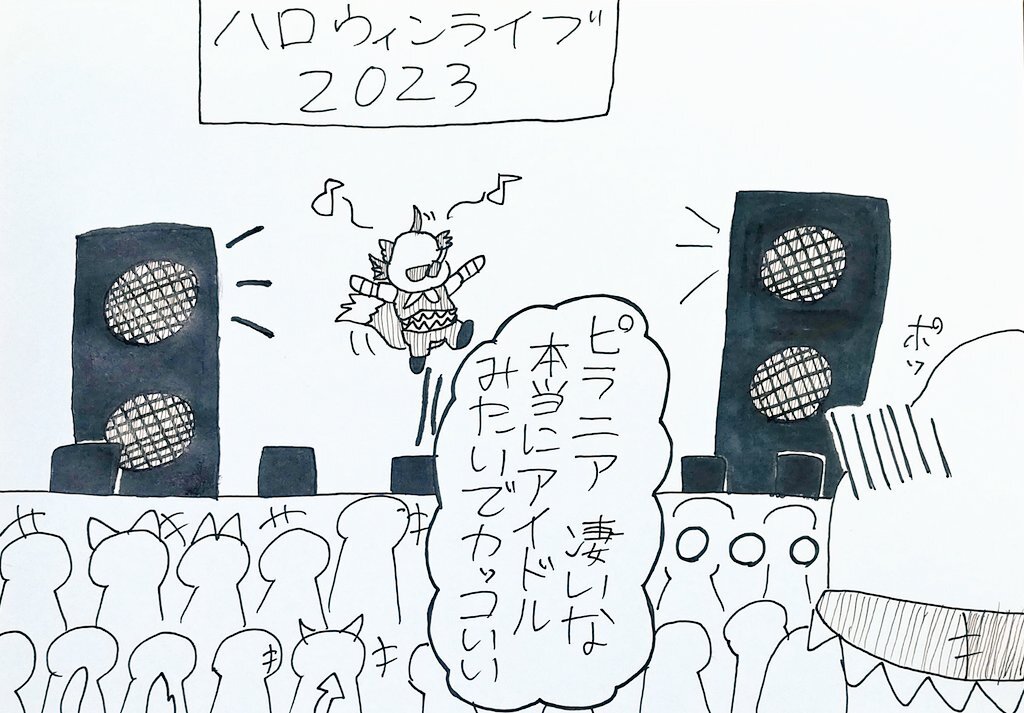 ハロウィンライブ
2023
ピラニア 凄いな
本当にアイドル
みたいでカッコいい
ポッ